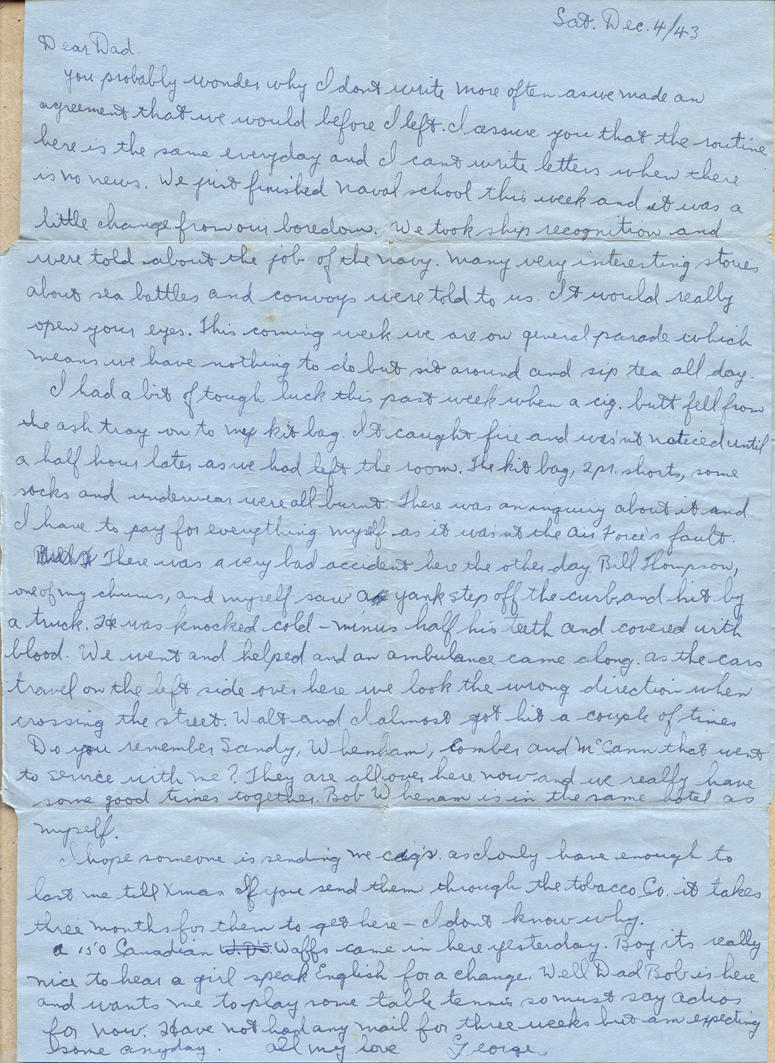 Sat. Dec. 4/43
Dear Dad.
You probably wonder why I dont write more often as we made an
agreement that we would before I left. I assure you that the routine
here is the same everyday and I cant write letters when there
is no news. We just finished naval school this week and it was a
little change from our boredom. We took ship recognition and
were told about the job of the navy. Many very interesting stories
about sea battles and convoys were told to us. It would really
open your eyes. This coming week we are on general parade which
means we have nothing to do but sit around and sip tea all day.
I had a bit of tough luck this past week when a cig. butt fell from
the ash tray on to my kit bag. It caught fire and was'nt noticed until
a half hour later as we had left the room. The kit bag, 2 pr. shorts, some
socks and underwear were all burnt. There was an inquiry about it and
I have to pay for everything myself as it was'nt the Air Force's fault.
There was a very bad accident here the other day. Bill Thompson,
one of my chums, and myself saw a yank step off the curb and hit by
a truck. He was knocked cold - minus half his teeth and covered with
blood. We went and helped and an ambulance came along. as the cars
travel on the left side over here we look the wrong direction when
crossing the street. Walt and I almost got hit a couple of times
Do you remember Sandy, Whenham, Comber and McCann that went
to service with me? They are all over here now and we really have
some good times together. Bob Whenam is in the same hotel as
myself.
I hope someone is sending me cigs. as I only have enough to
last me till Xmas If you send them through the tobacco Co. it takes
three months for them to get here - I dont know why.
a 150 Canadian W.D's Waffs came in here yesterday. Boy its really
nice to hear a girl speak English for a change. Well Dad Bob is here
and wants me to play some table tennis so must say adios
for now. Have not had any mail for three weeks but am expecting
some anyday. All my love George